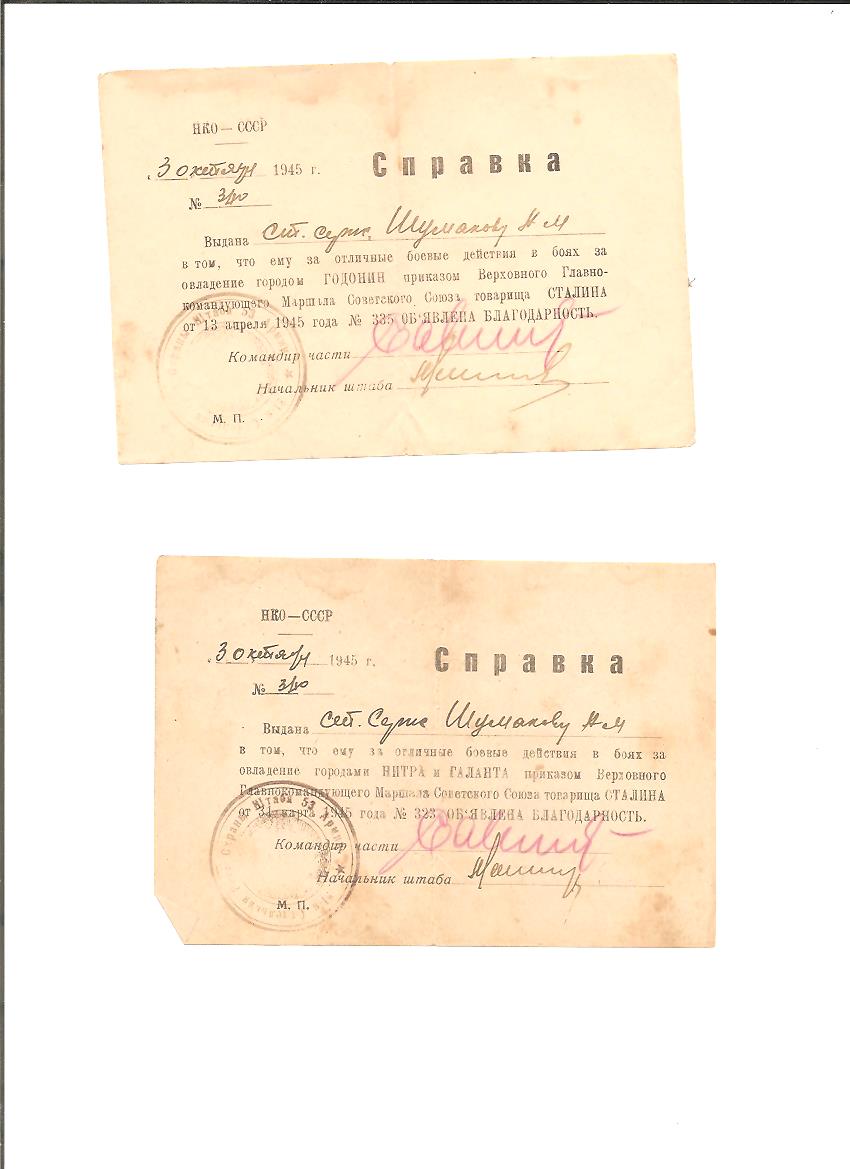 НКО — СССР
3 октября 1945 г.
Справка
№ 340
Выдана ст. серж. Шумакову Н М
в том, что ему за отличные боевые действия в боях за
овладение городом ГОДОНИН приказом Верховного Главно-
командующего Маршала Советского Союза товарища СТАЛИНА
от 13 апреля 1945 года № 335 ОБ'ЯВЛЕНА БЛАГОДАРНОСТЬ.
Командир части
Начальник штаба
М. П.
Штаба 53 Арми
НКО—СССР
3 октября 1945 г.
Справка
№ 340
Выдана ст. Серж Шумакову Н М
в том, что ему за отличные боевые действия в боях за
овладение городами НИТРА и ГАЛАНТА приказом Верховного
Главнокомандующего Маршала Советского Союза товарища СТАЛИНА
от 31 марта 1945 года № 323 ОБ'ЯВЛЕНА БЛАГОДАРНОСТЬ.
Командир части
Начальник штаба
М. П.
Охраны Штаба 53 Арми